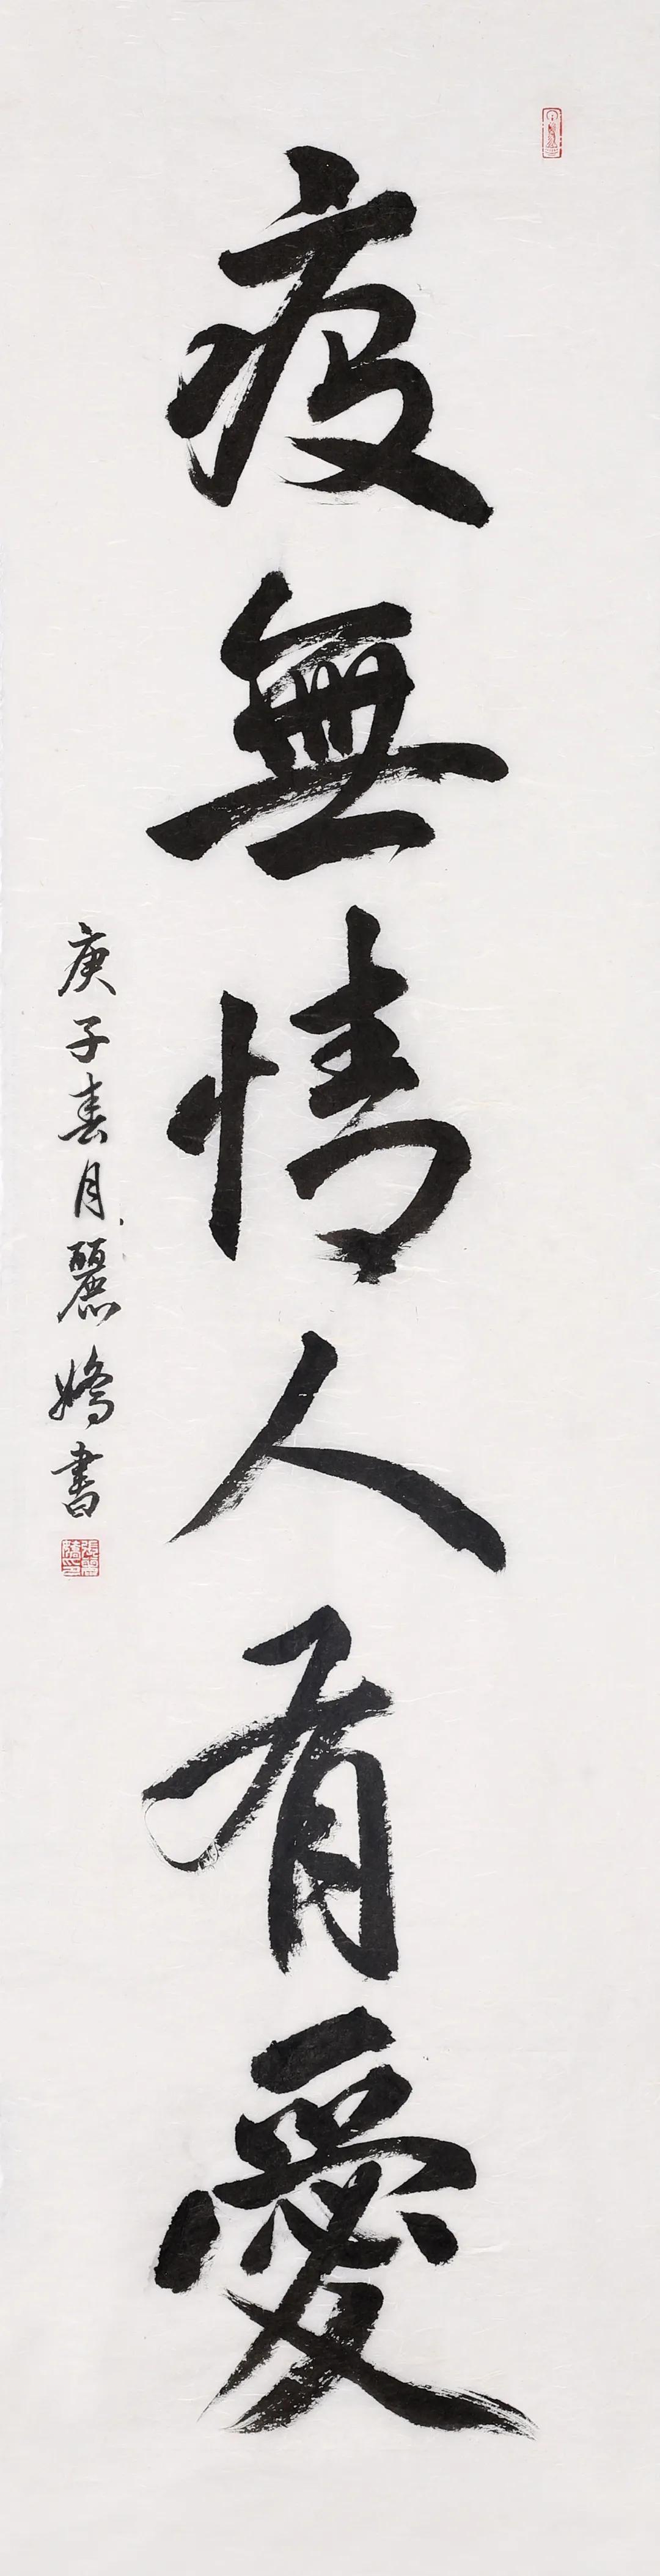 疫無情人有愛
庚子春月麗嬌書